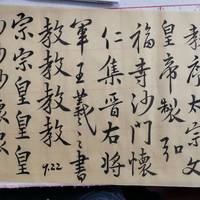 教序太宗文
皇帝製弘
福寺沙門懷
仁集晉右將
軍王羲之書
教教教教
9.22
宗宗皇皇皇